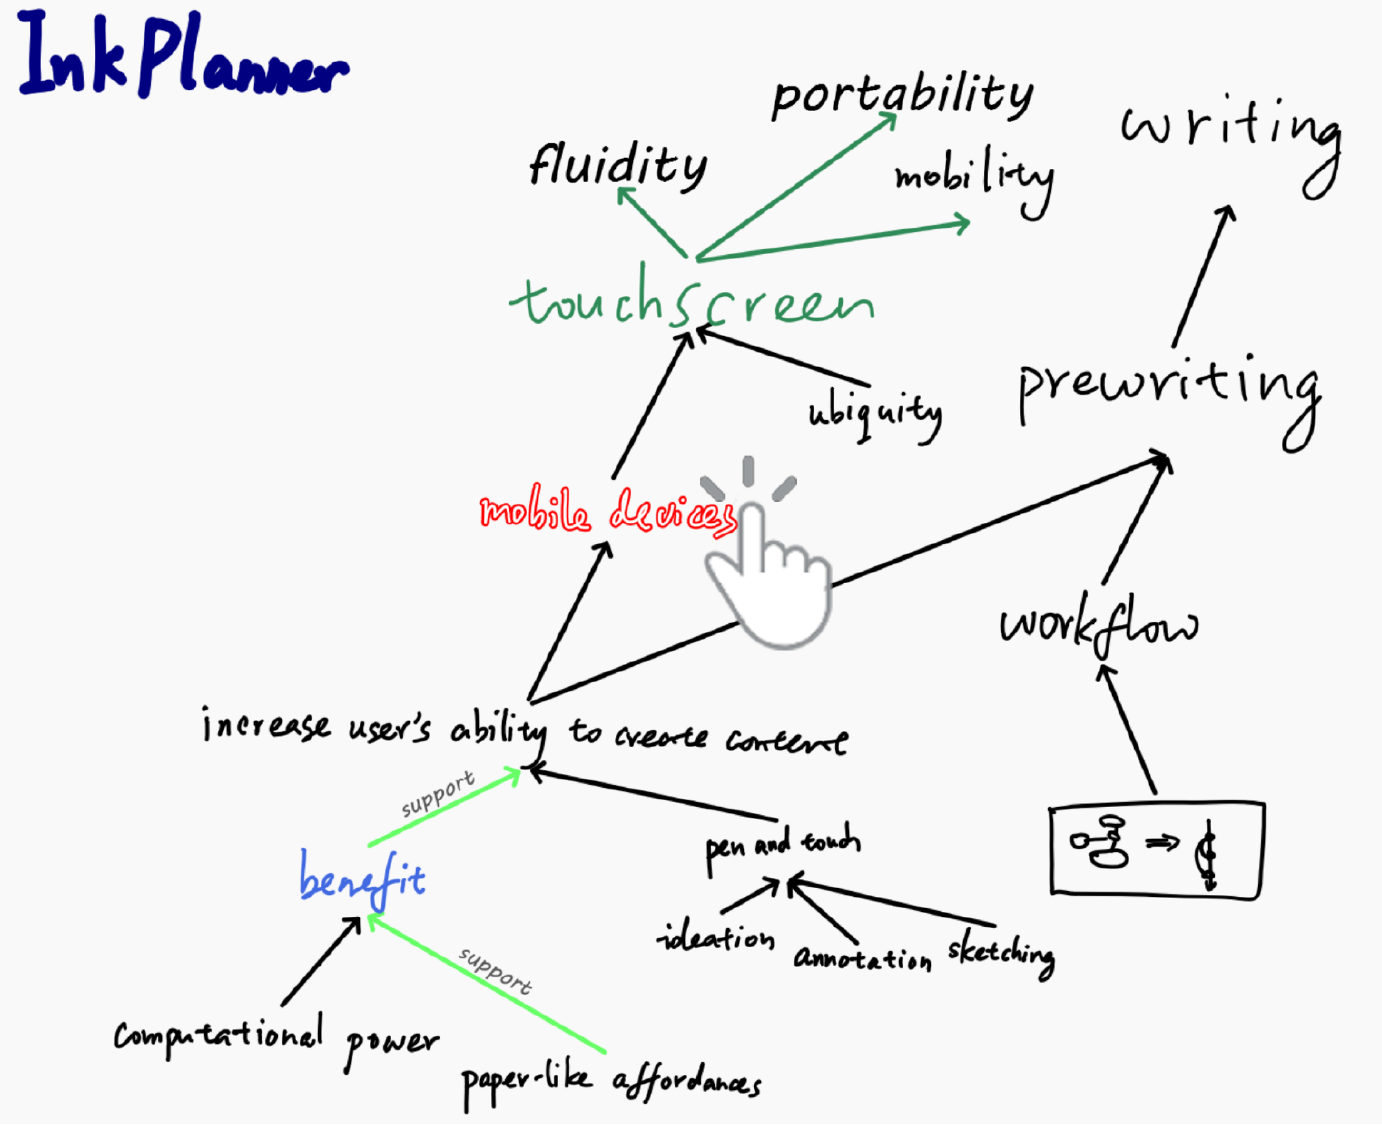 InkPlanner
portability
writing
fluidity
mobility
touchscreen
prewriting
ubiquity
mobile devices
workflow
increase user's ability to create content
support
pen and touch
benefit
ideation
annotation
sketching
support
computational power
paper-like affordances